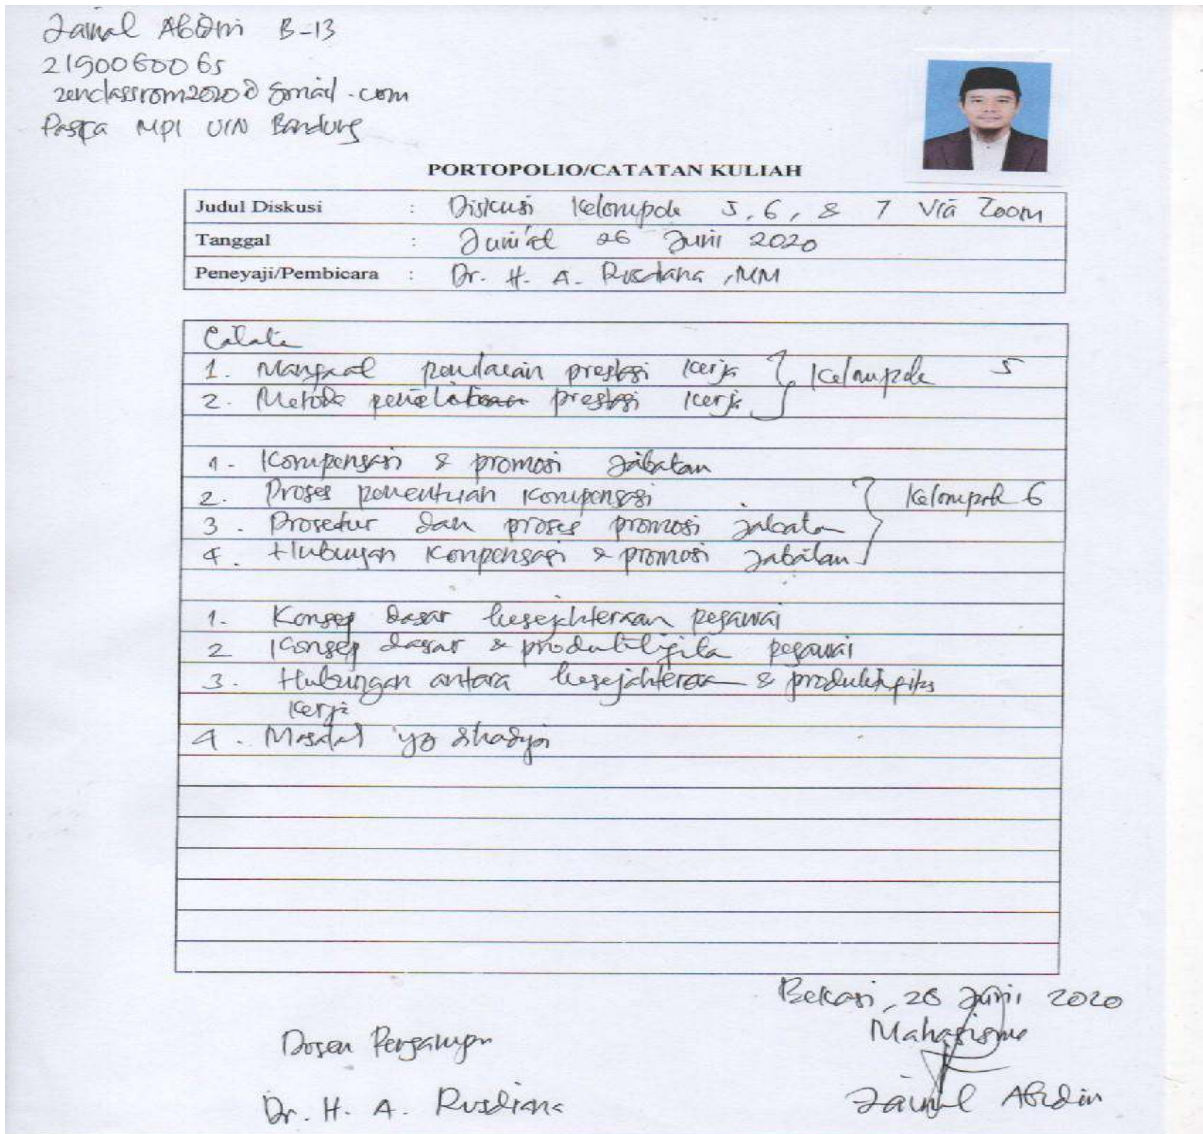 Jainal Abidin B-13
2190060065
zenclassrom2020@gmail.com
Pasca MPI UIN Bandung
PORTOPOLIO/CATATAN KULIAH
Judul Diskusi : Diskusi Kelompok 5, 6, & 7 Via Zoom
Tanggal : Jum'at 26 Juni 2020
Peneyaji/Pembicara : Dr. H. A. Rusdiana, MM
Catata
1. Manfaat penilaian prestasi kerja
2. Metode prestasi kerja
Kelompok 5
1. Kompensasi & promosi Jabatan
2. Proses penentuan kompensasi
3. Prosedur dan proses promosi jabatan
4. Hubungan kompensasi & promosi Jabatan
Kelompok 6
1. Konsep dasar kesejahteraan pegawai
2 Konsep dasar & produktifita pegawai
3. Hubungan antara kesejahteraan & produktifitas
kerja
4. Masalah yg dihadapi
Bekasi, 26 Juni 2020
Mahasiswa
Dosen Pengampu
Dr. H. A. Rusdiana
Jainal Abidin